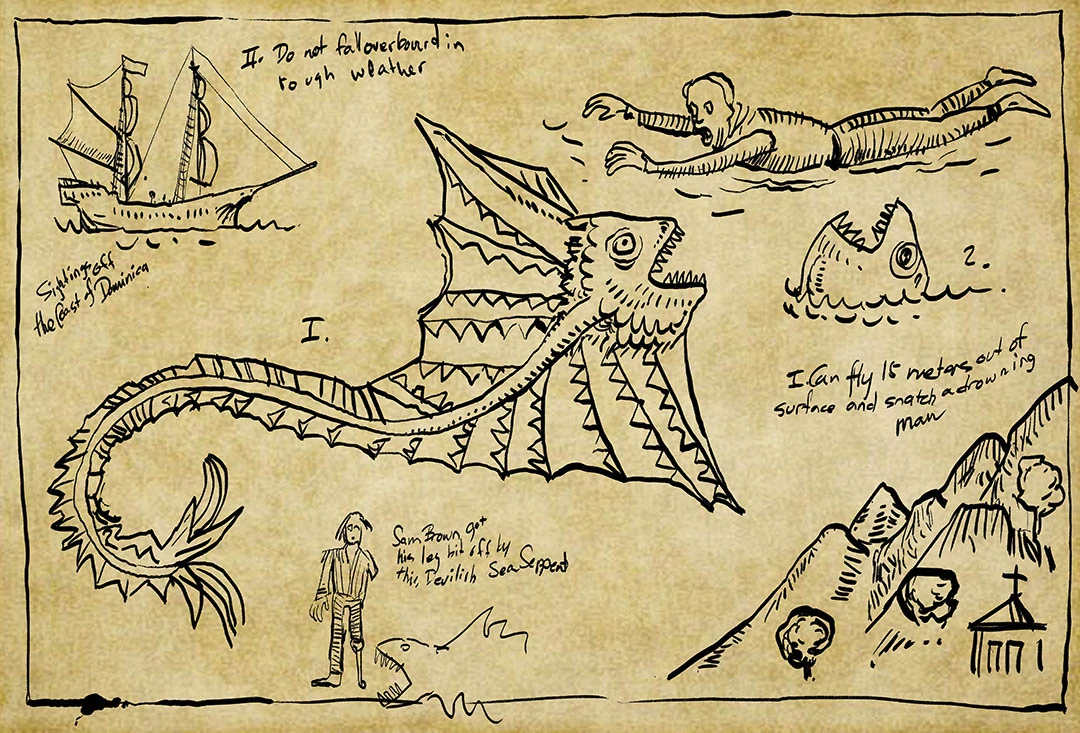 II. Do not fall overboard in
rough weather
Sightings off
the Coast of Dominica
I.
2.
I. Can fly 15 meters out of
surface and snatch a drowning
man
Sam Brown got
his leg bit off by
this Devilish Sea Serpent